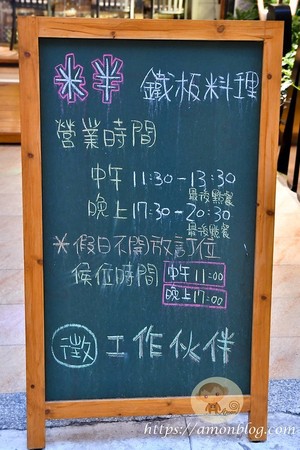 米半 鐵板料理
營業時間
中午 11:30-13:30
最後點餐
晚上 17:30-20:30
最後點餐
*假日不開放訂位
候位時間 中午 11:00
晚上 17:00
徵 工作伙伴
https://amonblog.com